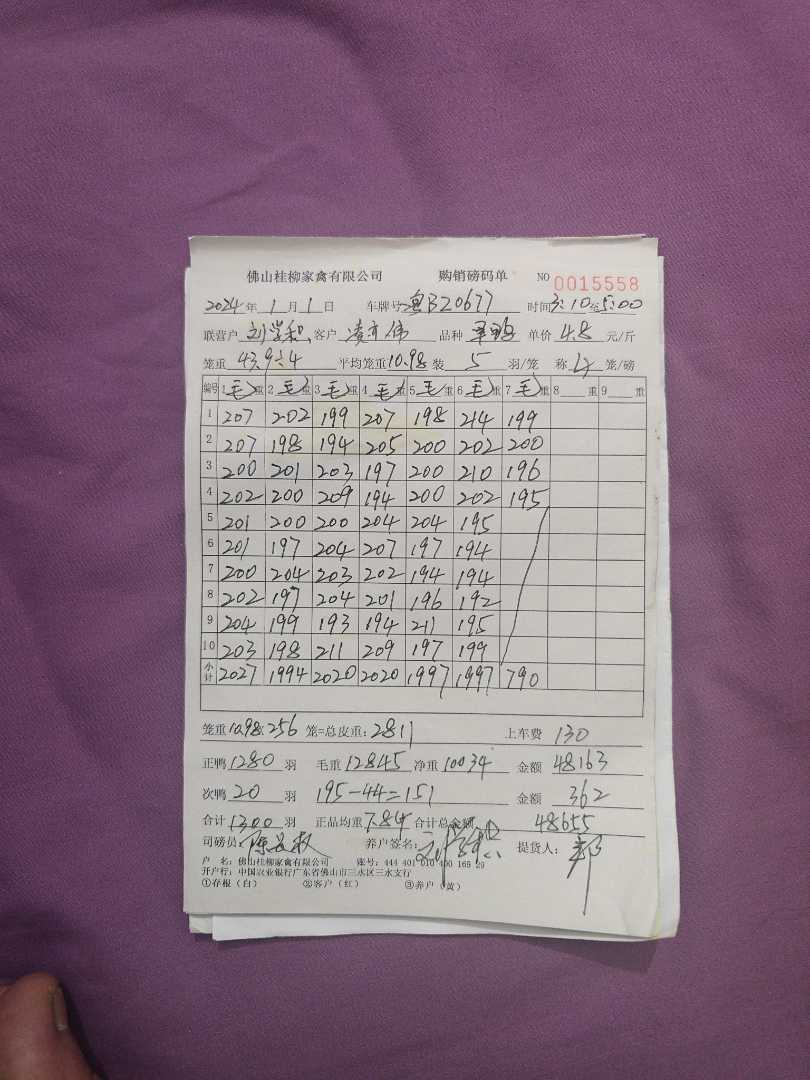 佛山桂柳家禽有限公司 购销磅码单 NO 0015558
2024年 1月 1日 车牌号 粤B20677 时间 3:10至5:00
联营户 刘学和 客户 凌 伟 品种 单价 4.8 元/斤
笼重 43.9÷4 平均笼重 10.98 装 5 羽/笼 称 4 笼/磅
编号 1 毛 重 2 毛 重 3 毛 重 4 毛 重 5 毛 重 6 毛 重 7 毛 重 8 重 9 重
1 207 202 199 207 198 214 199
2 207 198 194 205 200 202 200
3 200 201 203 197 200 210 196
4 202 200 209 194 200 202 195
5 201 200 200 204 204 195
6 201 197 204 207 197 194
7 200 204 203 202 194 194
8 202 197 204 201 196 192
9 204 199 193 194 211 195
10 203 198 211 209 197 199
小计 2027 1994 2020 2020 1997 1997 790
笼重 10.98×256 笼=总皮重: 2811 上车费 130
正鸭 1280 羽 毛重 12845 净重 10034 金额 48163
次鸭 20 羽 195-44=151 金额 362
合计 1300 羽 正品均重 7.84 合计总金额 48655
司磅员: 养户签名: 提货人:
户 名: 佛山桂柳家禽有限公司 账号: 444 401 010 400 165 29
开户行: 中国农业银行广东省佛山市三水区三水支行
①存根(白) ②客户(红) ③养户(黄)